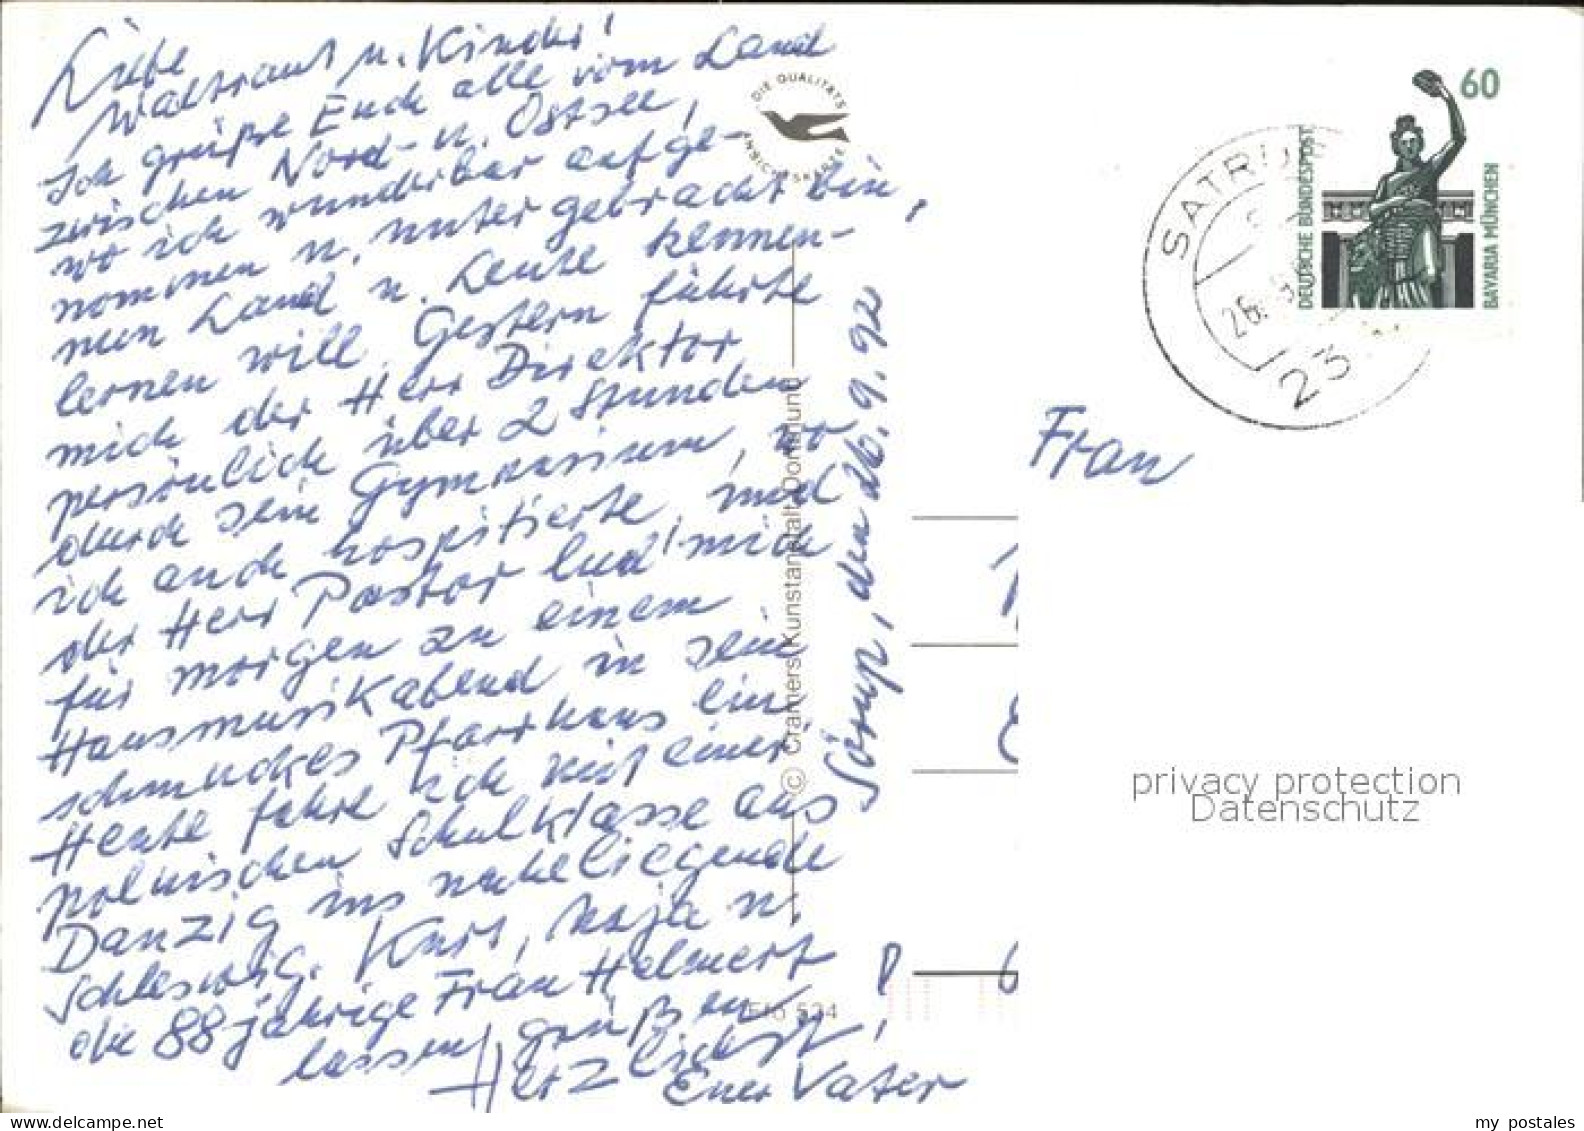 Liebe
Waltraut u. Kinder!
Ich grüße Euch alle vom Land
zwischen Nord- u. Ostsee,
wo ich wunderbar aufge-
nommen u. untergebracht bin,
nun Land u. Leute kennen-
lernen will. Gestern führte
mich der Herr Direktor
persönlich über 2 Stunden
durch sein Gymnasium, wo
ich auch hospitierte, und
der Herr Pastor lud mich
für morgen zu einem
Hausmusikabend in sein
schmuckes Pfarrhaus ein.
Heute fahre ich mit einer
polnischen Schulklasse aus
Danzig ins naheliegende
Schleswig. Kurt, Maja u.
die 88jährige Frau Helmert
lassen grüßen
Herzlichst,
Euer Vater
Sörup, den 26.9.92
DIE QUALITÄTS
ANSICHTSKARTE
© Cramers Kunstanstalt Dortmund
Flo 524
60
DEUTSCHE BUNDESPOST
BAVARIA MÜNCHEN
SATRUP
26.
23
Frau
privacy protection
Datenschutz
my postales